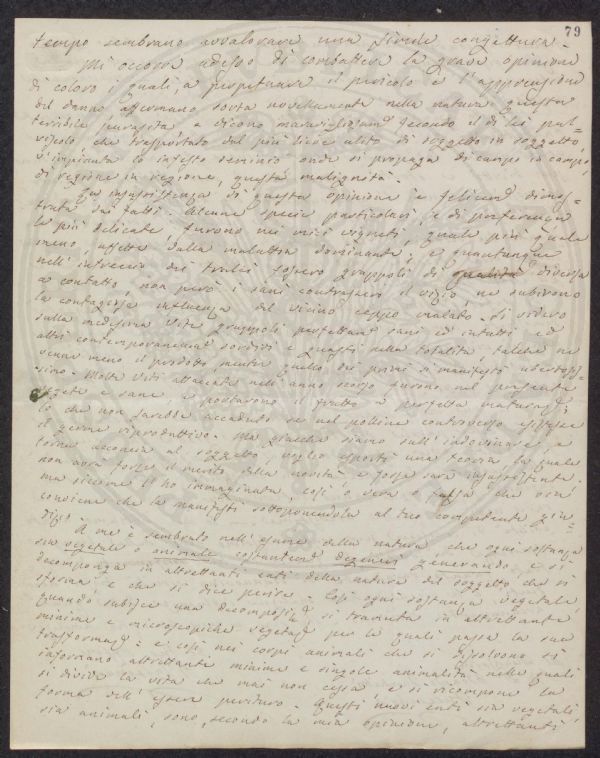 79
tempo sembrano avvalorare una simile congettura.
Mi occorre adesso di combattere la grave opinione
di coloro i quali, a perpetuare il pericolo e l'apprensione
del danno affermano sorta novellamente nella natura questa
terribile parassita, e dicono maravigliosamte. secondo il di lei pul=
viscolo, che trasportato dal più lieve alito di soggetto in soggetto
v'impianta lo infesto seminio onde si propaga di campo in campo,
di regione in regione, questa malignità.
La insussistenza di questa opinione è felicemte. dimos=
trata dai fatti. Alcune specie particolari, e di preferenza
le più delicate, furono nei miei vigneti, quale più quale
meno, affette dalla malattia dominante, e quantunque
nell'intreccio dei tralci fossero grappoli di qualità diversa
a contatto non però i sani contrassero il vizio, ne subirono
la contagiosa influenza del vicino ceppo malato. Si videro
sulla medesima vite grappoli perfettamte. sani ed intatti ed
altri contemporaneamte. sordidi e guasti nella totalità, talche ne
venne meno il prodotto mentre quello dei primi si manifestò ubertosis=
simo. Molte viti attaccate nell'anno scorso furono nel presente
illese e sane e portarono il frutto a perfetta maturità;
lo che non sarebbe accaduto se nel polline controverso esistesse
il germe riproduttivo. Ma giacchè siamo sull'indovinare, e
torna acconcia al soggetto, voglio esporti una teoria, la quale
non avrà forse il merito della novità e forse sarà insussistente.
ma siccome l'ho immaginata così, o vera o falsa che sia
conviene che la manifesti sottoponendola al tuo competente giu=
dizio.
A me è sembrato nell'esame della natura, che ogni sostanza
sia vegetale o animale costantemte. degeneri generando e si
decomponga in altrettanti enti della natura del soggetto che si
sforma e che si dice perire. Così ogni sostanza vegetale,
quando subisce una decomposizne. si tramuta in altrettante
minime e microscopiche vegetazni. per le quali passa la sua
trasformazne. e così nei corpi animali che si dissolvono si
informano altrettante minime e singole animalità nelle quali
si divide la vita che mai non cessa e si ricompone la
forma dell'essere perituro. Questi nuovi enti sia vegetali,
sia animali, sono, secondo la mia opinione, altrettanti